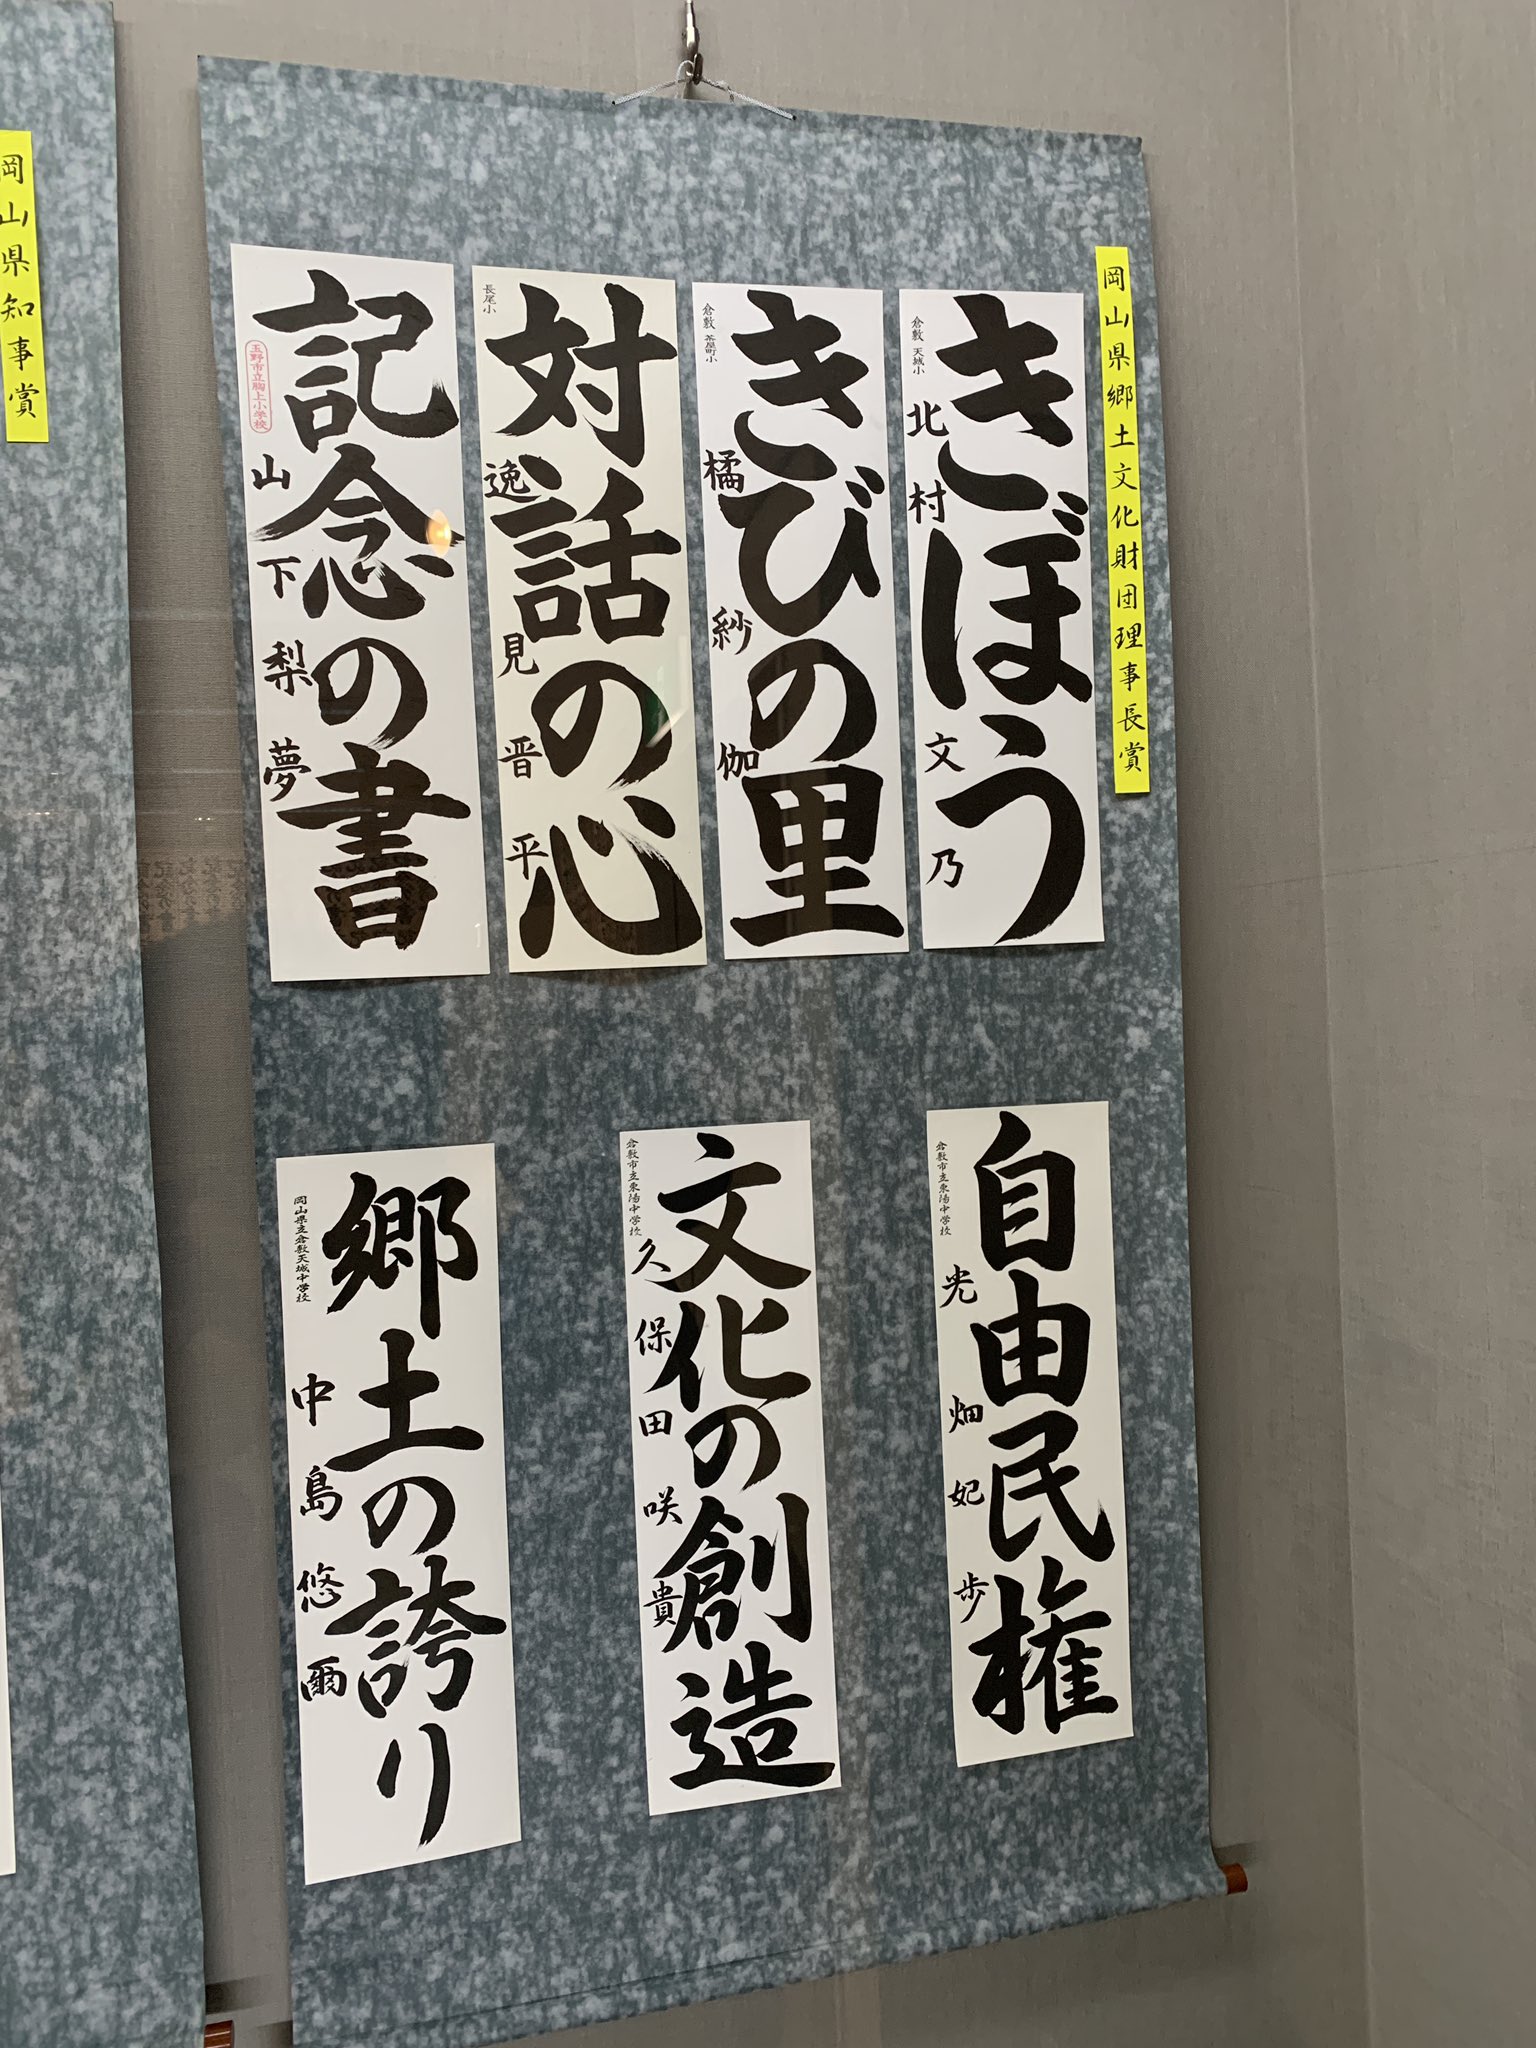 岡山県郷土文化財団理事長賞
きぼう
倉敷 天城小
北村文乃
きびの里
倉敷 茶屋町小
橘紗伽
対話の心
長尾小
逸見晋平
記念の書
玉野市立胸上小学校
山下梨夢
自由民権
倉敷市立東陽中学校
光畑妃歩
文化の創造
倉敷市立東陽中学校
久保田咲貴
郷土の誇り
岡山県立倉敷天城中学校
中島悠爾
岡山県知事賞